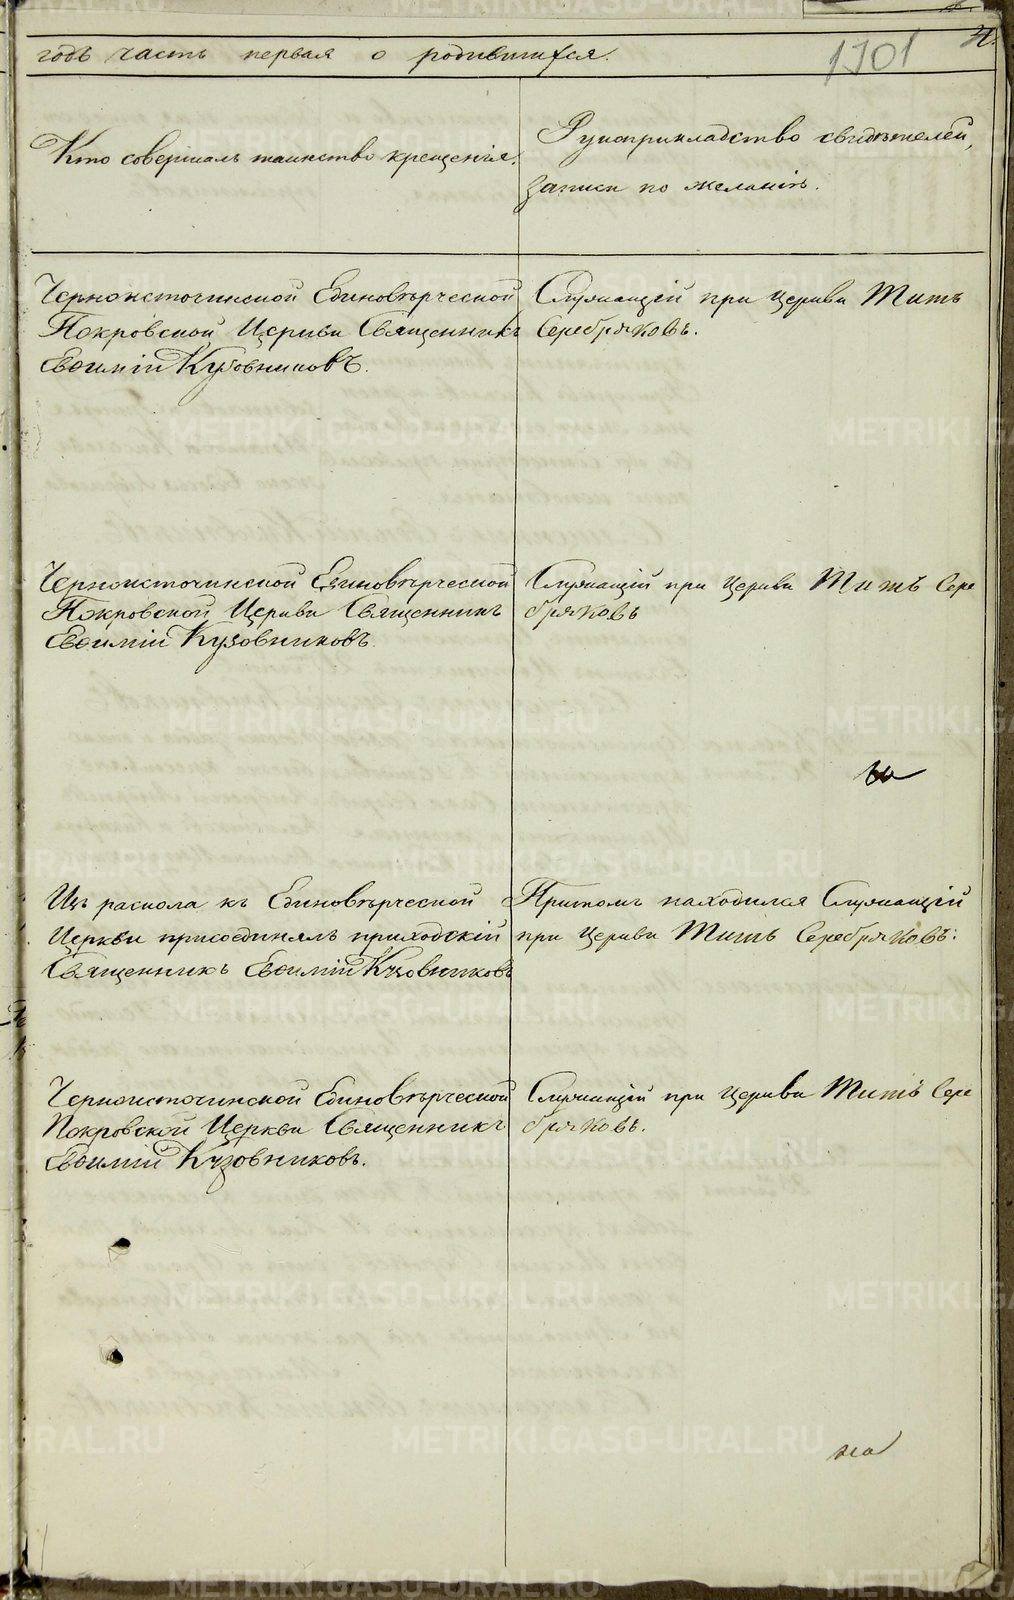 годъ часть первая о родившихся.
1701
Кто совершалъ таинство крещенія.
Рукоприкладство свидѣтелей,
записи по желанію.
Черноисточинской Единовѣрческой
Покровской Церкви Священникъ
Евѳимій Кузовниковъ.
Служащій при церкви Титъ
Серебряковъ.
Черноисточинской Единовѣрческой
Покровской Церкви Священникъ
Евѳимій Кузовниковъ.
Служащій при Церкви Титъ Сере
бряковъ
Изъ раскола къ Единовѣрческой
Церкви присоединялъ приходскій
Священникъ Евѳимій Кузовниковъ
Притомъ находился Служащій
при Церкви Титъ Серебряковъ.
Черноисточинской Единовѣрческой
Покровской Церкви Священникъ
Евѳимій Кузовниковъ.
Служащій при Церкви Титъ Сере
бряковъ.
METRIKI.GASO-URAL.RU